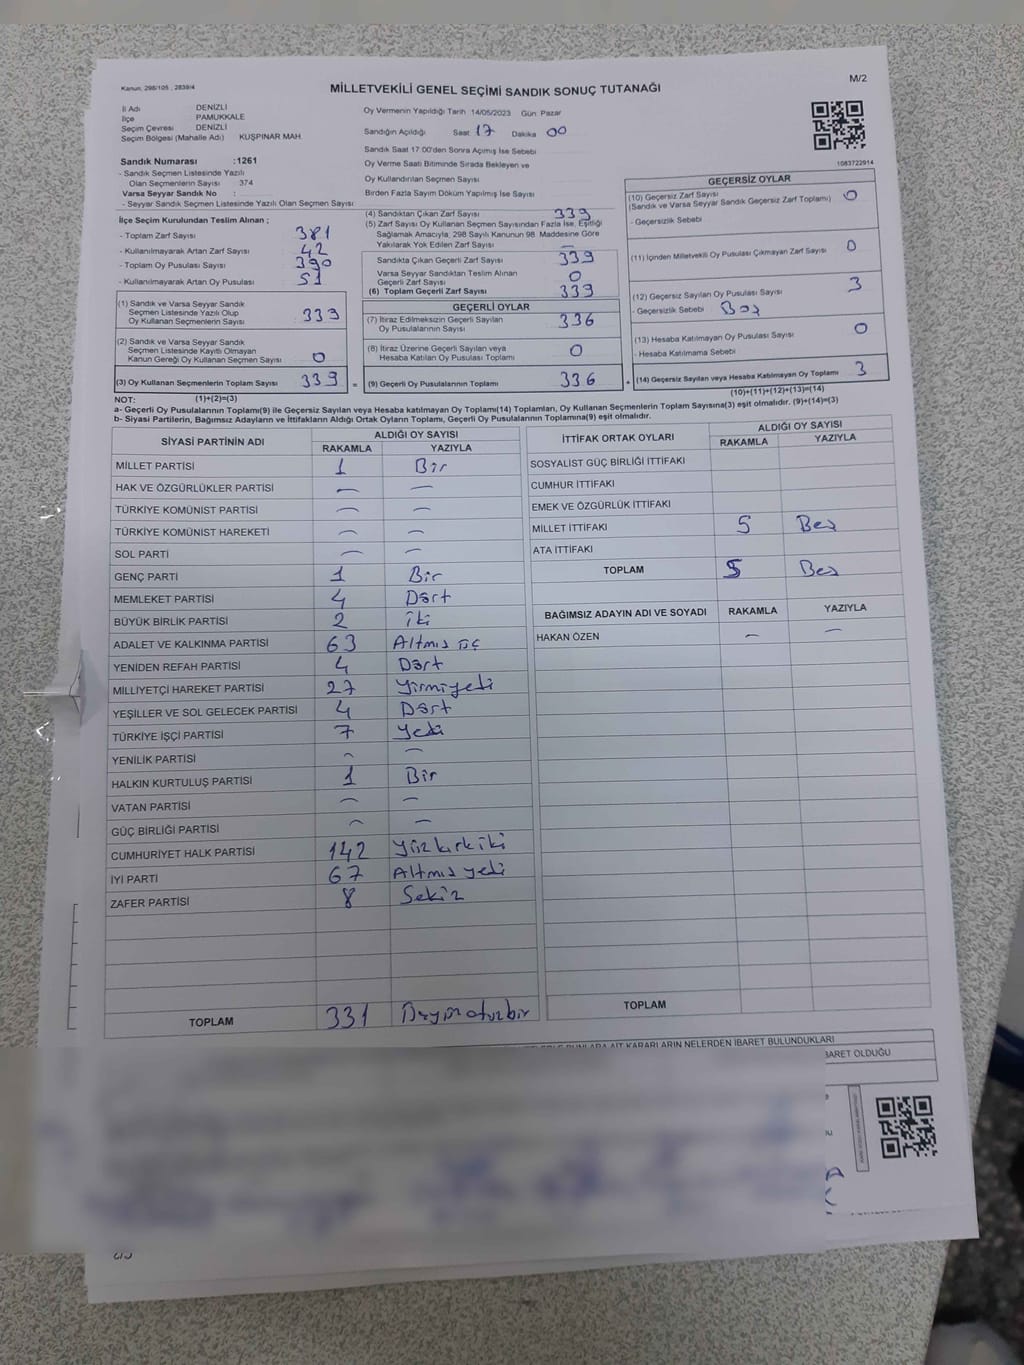 Kanun, 298/105 , 2839/4
MİLLETVEKİLİ GENEL SEÇİMİ SANDIK SONUÇ TUTANAĞI
M/2
İl Adı DENİZLİ
İlçe PAMUKKALE
Seçim Çevresi DENİZLİ
Seçim Bölgesi (Mahalle Adı) KUŞPINAR MAH.
Sandık Numarası :1261
- Sandık Seçmen Listesinde Yazılı
Olan Seçmenlerin Sayısı 374
Varsa Seyyar Sandık No :
- Seyyar Sandık Seçmen Listesinde Yazılı Olan Seçmen Sayısı:
Oy Vermenin Yapıldığı Tarih 14/05/2023 Gün Pazar
Sandığın Açıldığı Saat 17 Dakika 00
Sandık Saat 17:00'den Sonra Açımış İse Sebebi
Oy Verme Saati Bitiminde Sırada Bekleyen ve
Oy Kullandırılan Seçmen Sayısı
Birden Fazla Sayım Döküm Yapılmış İse Sayısı
1083722914
İlçe Seçim Kurulundan Teslim Alınan ;
- Toplam Zarf Sayısı 381
- Kullanılmayarak Artan Zarf Sayısı 42
- Toplam Oy Pusulası Sayısı 390
- Kullanılmayarak Artan Oy Pusulası 51
(1) Sandık ve Varsa Seyyar Sandık
Seçmen Listesinde Yazılı Olup
Oy Kullanan Seçmenlerin Sayısı 339
(2) Sandık ve Varsa Seyyar Sandık
Seçmen Listesinde Kayıtlı Olmayan
Kanun Gereği Oy Kullanan Seçmen Sayısı 0
(3) Oy Kullanan Seçmenlerin Toplam Sayısı 339 =
(4) Sandıktan Çıkan Zarf Sayısı 339
(5) Zarf Sayısı Oy Kullanan Seçmen Sayısından Fazla İse, Eşitliği
Sağlamak Amacıyla, 298 Sayılı Kanunun 98. Maddesine Göre
Yakılarak Yok Edilen Zarf Sayısı —
Sandıkta Çıkan Geçerli Zarf Sayısı 339
Varsa Seyyar Sandıktan Teslim Alınan
Geçerli Zarf Sayısı 0
(6) Toplam Geçerli Zarf Sayısı 339
GEÇERLİ OYLAR
(7) İtiraz Edilmeksizin Geçerli Sayılan
Oy Pusulalarının Sayısı 336
(8) İtiraz Üzerine Geçerli Sayılan veya
Hesaba Katılan Oy Pusulası Toplamı 0
(9) Geçerli Oy Pusulalarının Toplamı 336 +
GEÇERSİZ OYLAR
(10) Geçersiz Zarf Sayısı 0
(Sandık ve Varsa Seyyar Sandık Geçersiz Zarf Toplamı)
- Geçersizlik Sebebi
(11) İçinden Milletvekili Oy Pusulası Çıkmayan Zarf Sayısı 0
(12) Geçersiz Sayılan Oy Pusulası Sayısı 3
- Geçersizlik Sebebi Boş
(13) Hesaba Katılmayan Oy Pusulası Sayısı 0
- Hesaba Katılmama Sebebi
(14) Geçersiz Sayılan veya Hesaba Katılmayan Oy Toplamı 3
NOT: (1)+(2)=(3)
(10)+(11)+(12)+(13)=(14)
a- Geçerli Oy Pusulalarının Toplamı(9) ile Geçersiz Sayılan veya Hesaba katılmayan Oy Toplamı(14) Toplamları, Oy Kullanan Seçmenlerin Toplam Sayısına(3) eşit olmalıdır. (9)+(14)=(3)
b- Siyasi Partilerin, Bağımsız Adayların ve İttifakların Aldığı Ortak Oyların Toplamı, Geçerli Oy Pusulalarının Toplamına(9) eşit olmalıdır.
SİYASİ PARTİNİN ADI ALDIĞI OY SAYISI
RAKAMLA YAZIYLA
MİLLET PARTİSİ 1 Bir
HAK VE ÖZGÜRLÜKLER PARTİSİ — —
TÜRKİYE KOMÜNİST PARTİSİ — —
TÜRKİYE KOMÜNİST HAREKETİ — —
SOL PARTİ — —
GENÇ PARTİ 1 Bir
MEMLEKET PARTİSİ 4 Dört
BÜYÜK BİRLİK PARTİSİ 2 iki
ADALET VE KALKINMA PARTİSİ 63 Altmış üç
YENİDEN REFAH PARTİSİ 4 Dört
MİLLİYETÇİ HAREKET PARTİSİ 27 Yirmiyedi
YEŞİLLER VE SOL GELECEK PARTİSİ 4 Dört
TÜRKİYE İŞÇİ PARTİSİ 7 Yedi
YENİLİK PARTİSİ — —
HALKIN KURTULUŞ PARTİSİ 1 Bir
VATAN PARTİSİ — —
GÜÇ BİRLİĞİ PARTİSİ — —
CUMHURİYET HALK PARTİSİ 142 Yüzkırkiki
İYİ PARTİ 67 Altmış yedi
ZAFER PARTİSİ 8 Sekiz
TOPLAM 331 Üçyüzotuzbir
İTTİFAK ORTAK OYLARI ALDIĞI OY SAYISI
RAKAMLA YAZIYLA
SOSYALİST GÜÇ BİRLİĞİ İTTİFAKI
CUMHUR İTTİFAKI
EMEK VE ÖZGÜRLÜK İTTİFAKI
MİLLET İTTİFAKI 5 Beş
ATA İTTİFAKI
TOPLAM 5 Beş
BAĞIMSIZ ADAYIN ADI VE SOYADI RAKAMLA YAZIYLA
HAKAN ÖZEN — —
TOPLAM
BUNLARA AİT KARARLARIN NELERDEN İBARET BULUNDUKLARI
BARET OLDUĞU